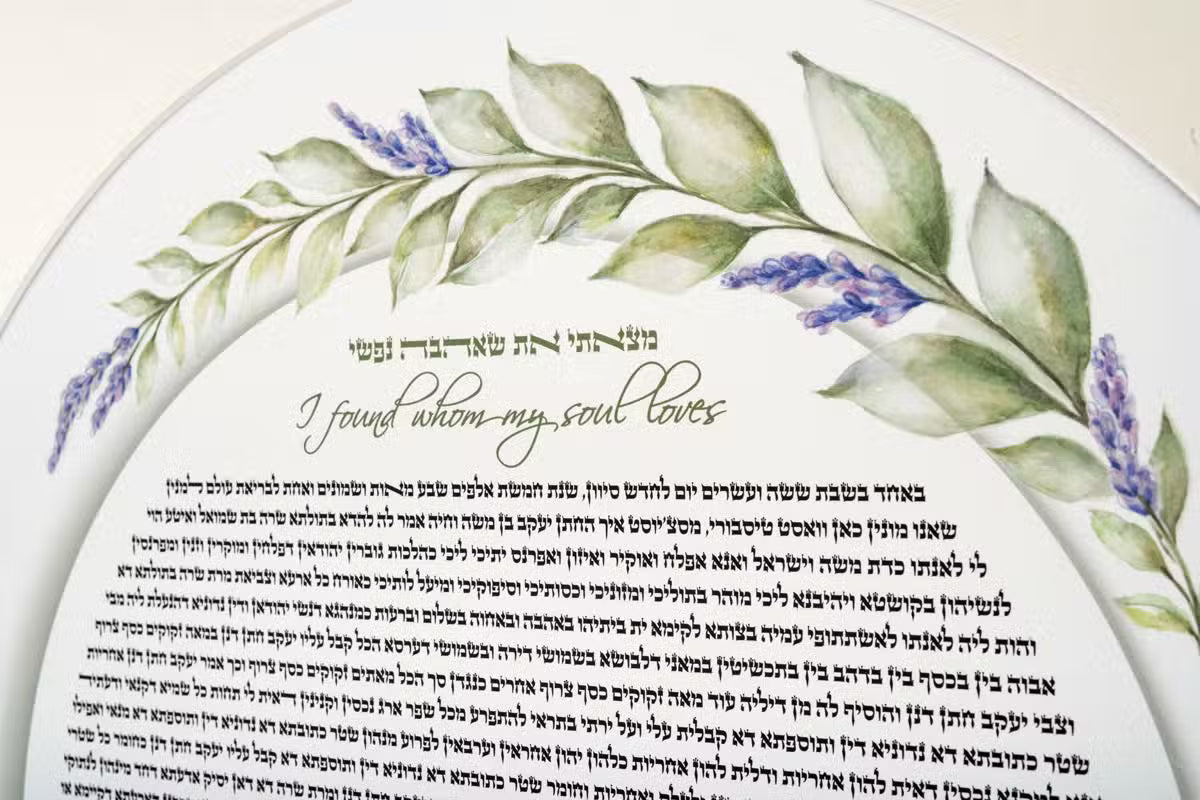 מצאתי את שאהבה נפשי
I found whom my soul loves
באחד בשבת ששה ועשרים יום לחדש סיוון, שנת חמשת אלפים שבע מאות ושמונים ואחת לבריאת עולם למנין
שאנו מונין כאן וואסט טיסבורי, מסצ'יוסט איך החתן יעקב בן משה וחיה אמר לה להדא בתולתא שרה בת שמואל ואיטע הוי
לי לאנתו כדת משה וישראל ואנא אפלח ואוקיר ואיזון ואפרנס יתיכי ליכי כהלכות גוברין יהודאין דפלחין ומוקרין וזנין ומפרנסין
לנשיהון בקושטא ויהיבנא ליכי מוהר בתוליכי ומזוניכי וכסותיכי וסיפוקיכי ומיעל לותיכי כאורח כל ארעא וצביאת מרת שרה בתולתא דא
והות ליה לאנתו לאשתתופי עמיה בצותא לקימא ית ביתיהו באהבה ובאחוה בשלום וברעות כמנהגא דנשי יהודאן ודין נדוניא דהנעלת ליה מבי
אבוה בין בכסף בין בדהב בין בתכשיטין במאני דלבושא בשמושי דירה ובשמושי דערסא הכל קבל עליו יעקב חתן דנן במאה זקוקים כסף צרוף
וצבי יעקב חתן דנן והוסיף לה מן דיליה עוד מאה זקוקים כסף צרוף אחרים כנגדן סך הכל מאתים זקוקים כסף צרוף וכך אמר יעקב חתן דנן אחריות
שטר כתובתא דא נדוניא דין ותוספתא דא קבלית עלי ועל ירתי בתראי להתפרע מכל שפר ארג נכסין וקנינין דאית לי תחות כל שמיא דקנאי ודעתיד
דאית להון אחריות ודלית להון אחריות כלהון יהון אחראין וערבאין לפרוע מנהון שטר כתובתא דא נדוניא דין ותוספתא דא מנאי ואפילו
ואחריות וחומר שטר כתובתא דא נדוניא דין ותוספתא דא קבל עליו יעקב חתן דנן כחומר כל שטרי